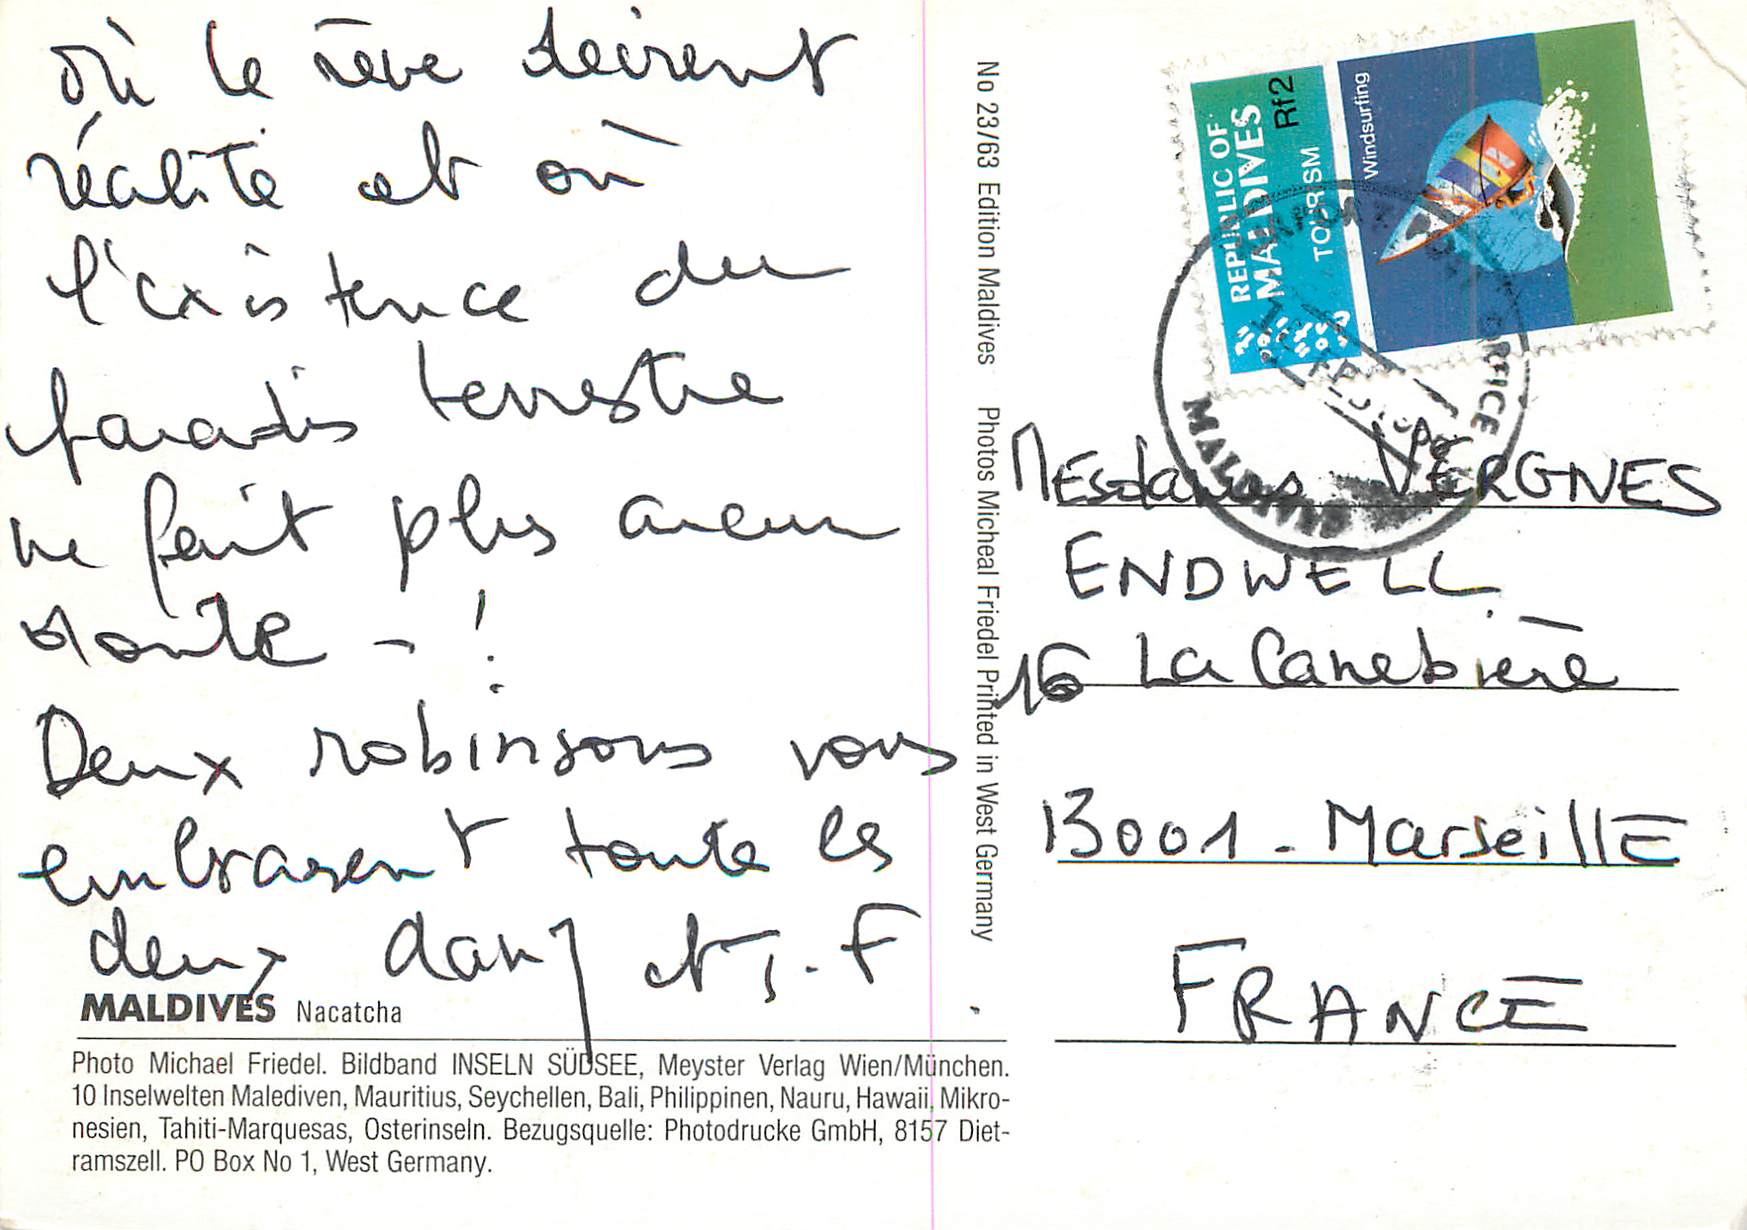 où le rêve devient
réalité et où
l'existence du
paradis terrestre
ne fait plus aucun
doute - !
Deux robinsons vous
embrassent toute les
deux
MALDIVES Nacatcha
Photo Michael Friedel. Bildband INSELN SÜDSEE, Meyster Verlag Wien/München.
10 Inselwelten Malediven, Mauritius, Seychellen, Bali, Philippinen, Nauru, Hawaii, Mikro-
nesien, Tahiti-Marquesas, Osterinseln. Bezugsquelle: Photodrucke GmbH, 8157 Diet-
ramszell. PO Box No 1, West Germany.
No 23/63 Edition Maldives Photos Micheal Friedel Printed in West Germany
REPUBLIC OF
MALDIVES
TOURISM
Rf2
Windsurfing
OFFICE
Mesdames VERGNES
ENDWELL
16 La Canebière
13001 - Marseille
FRANCE